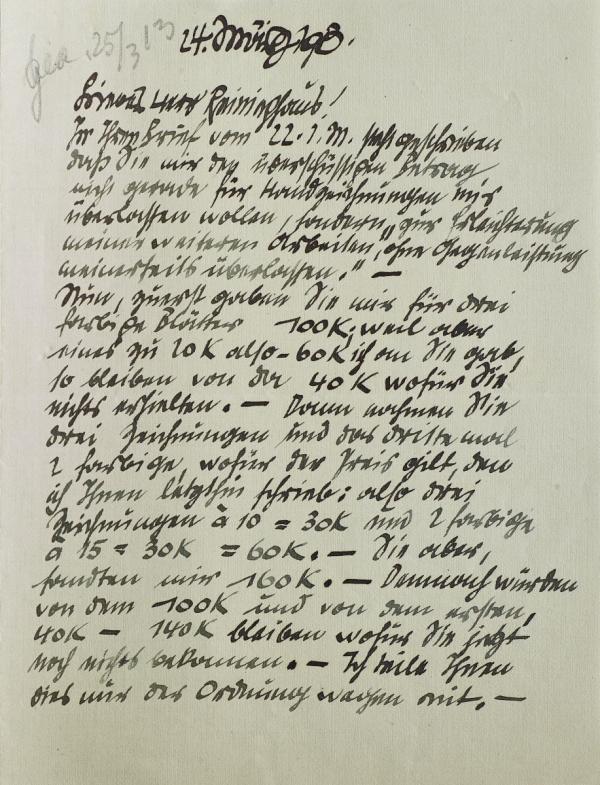 25/3 13
24. März 193.
Lieber Herr Reininghaus!
In Ihrem Brief vom 22. d. M. steht geschrieben
daß Sie mir den überschüssigen Betrag
nicht gerade für Handzeichnungen mir
überlassen wollen, sondern „zur Erleichterung
meiner weiteren Arbeiten, ohne Gegenleistung
meinerseits überlassen." —
Nun, zuerst gaben Sie mir für drei
farbige Blätter 100K; weil aber
eines zu 20K also – 60K ich an Sie gab,
so bleiben von da 40K wofür Sie
nichts erhielten. — Dann nahmen Sie
drei Zeichnungen und das dritte mal
2 farbige, wofür der Preis gilt, den
ich Ihnen letzthin schrieb: also drei
Zeichnungen à 10 = 30K und 2 farbige
à 15 = 30K = 60K. — Sie aber,
sandten mir 160K. — Demnach würden
von dem 100K und von dem ersten,
40K — 140K bleiben wofür Sie jetzt
noch nichts bekamen. — Ich teile Ihnen
dies nur der Ordnung wegen mit. —